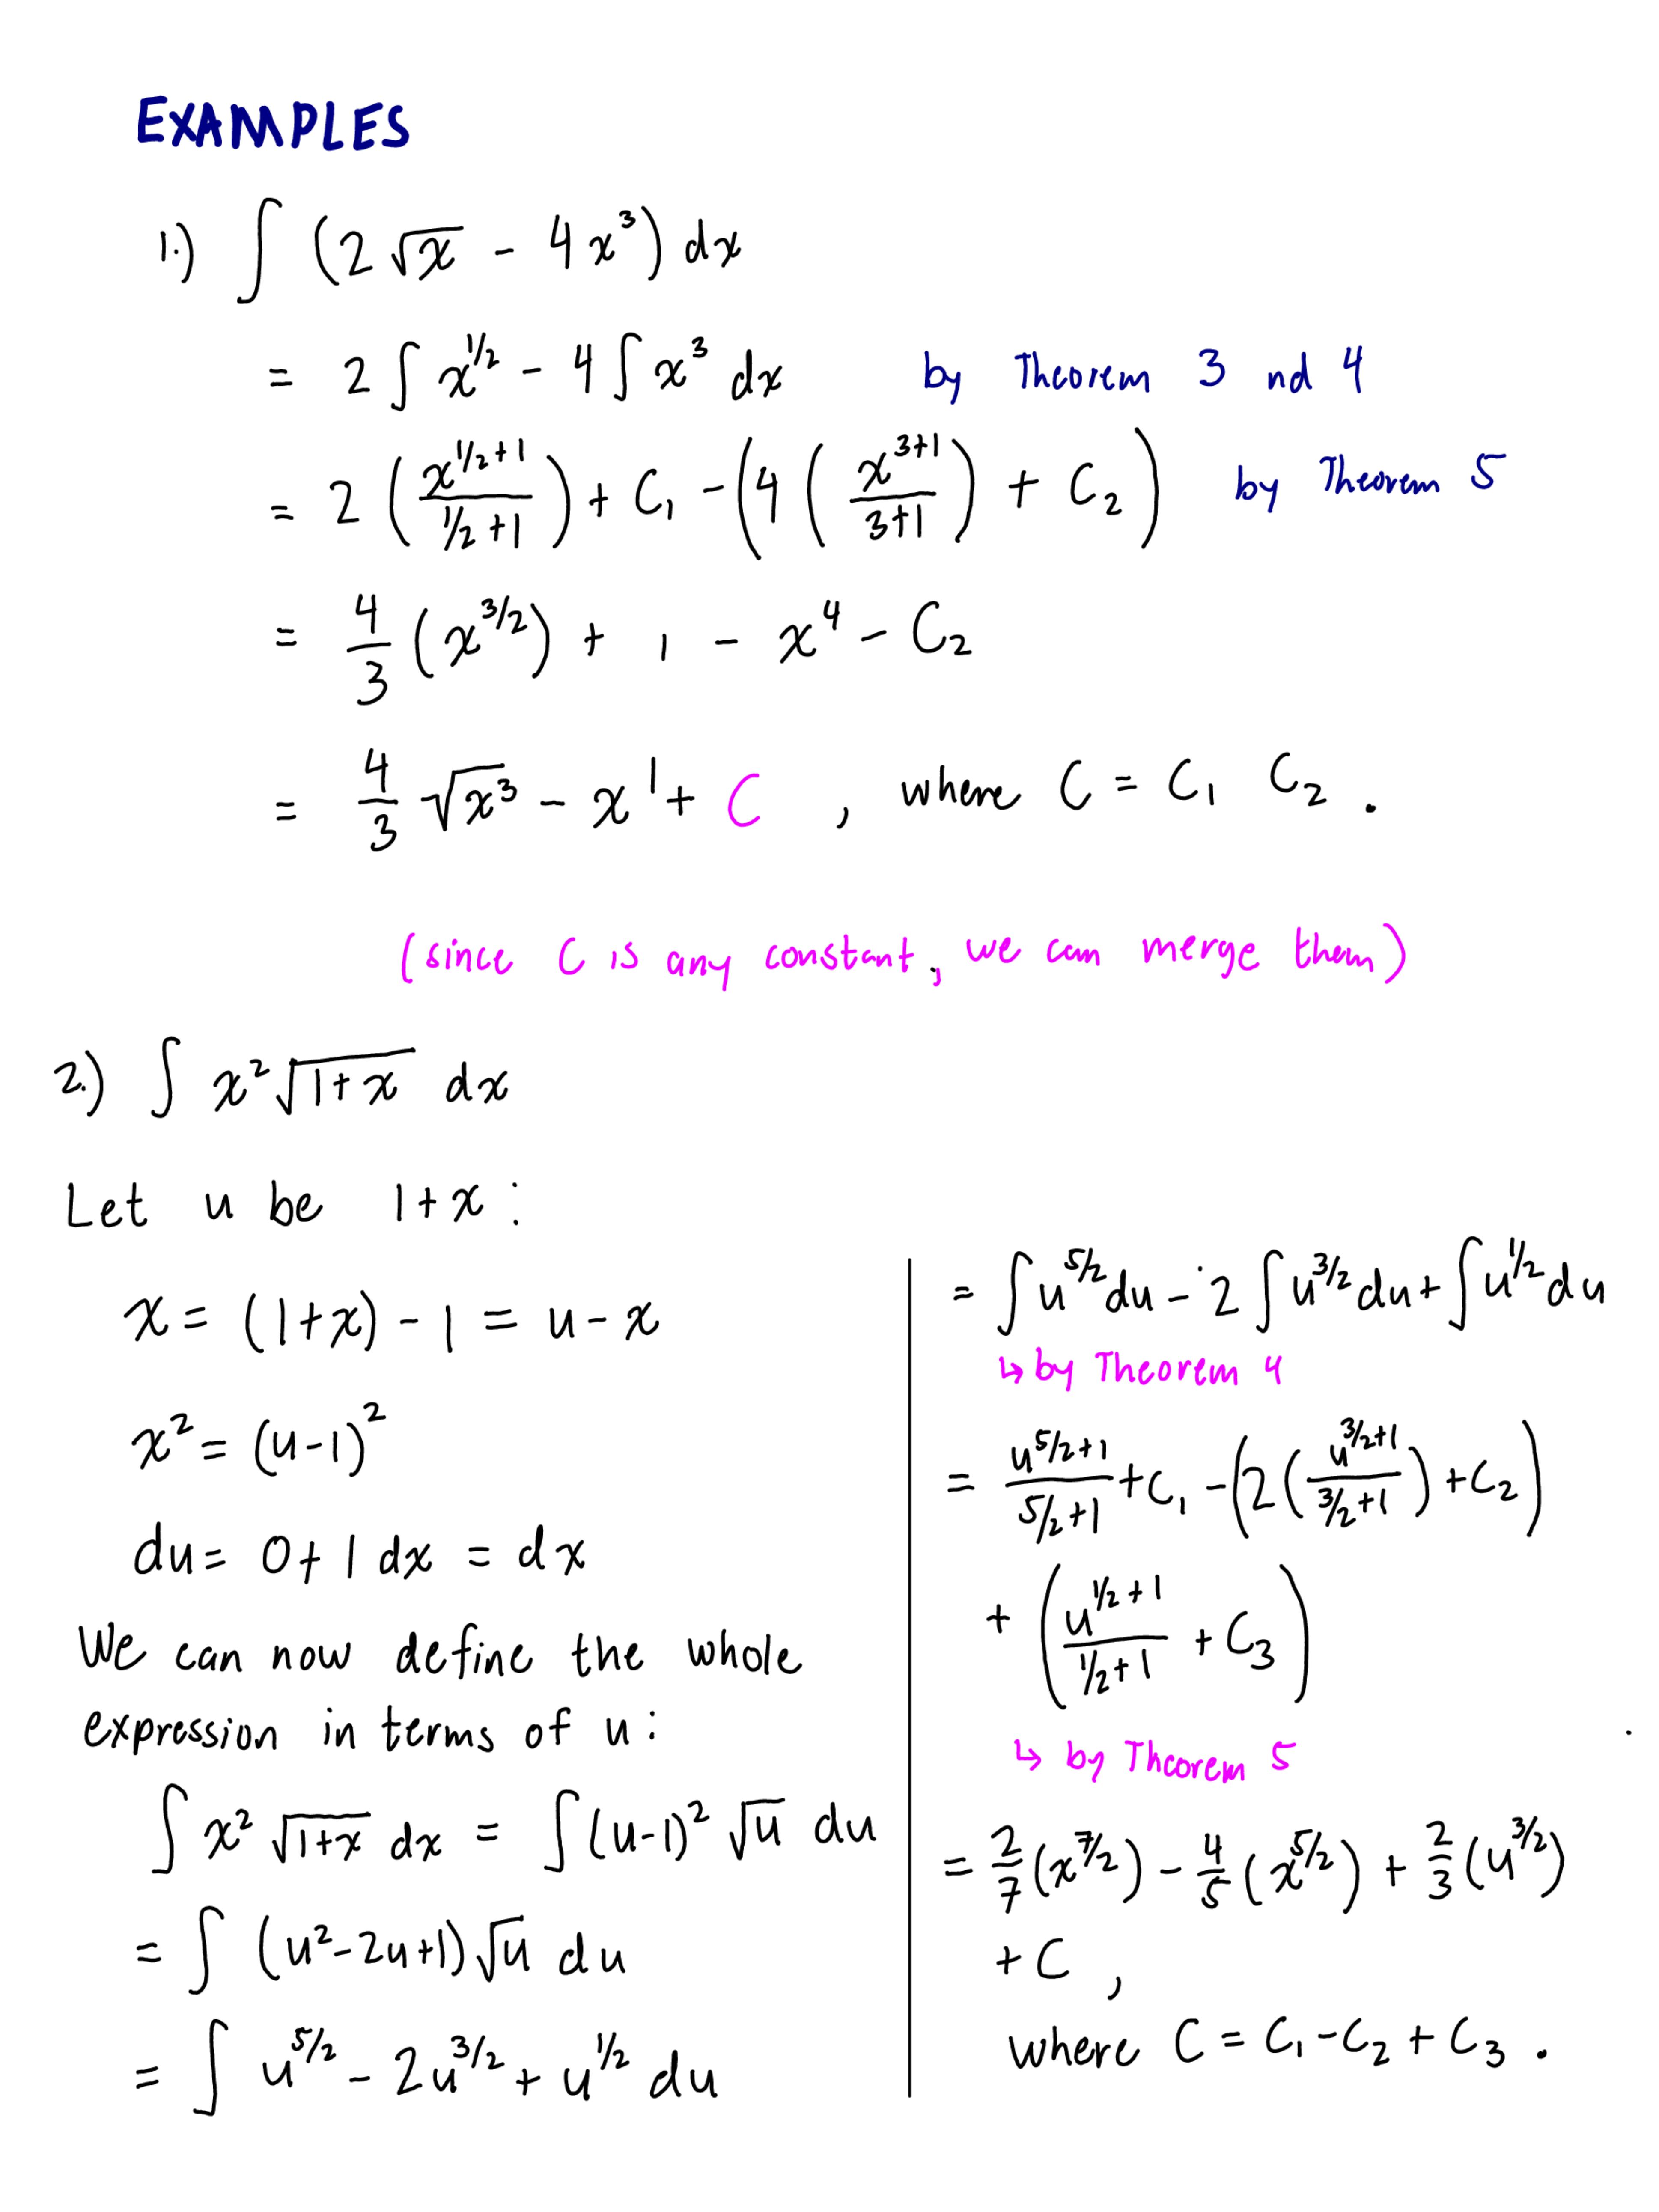 EXAMPLES
1.) ∫ (2√x - 4x³) dx
= 2 ∫ x^{1/2} - 4 ∫ x³ dx by Theorem 3 nd 4
= 2 (x^{1/2+1} / (1/2+1)) + C₁ - (4 (x^{3+1} / (3+1)) + C₂) by Theorem 5
= 4/3 (x^{3/2}) + ı - x⁴ - C₂
= 4/3 √x³ - x^| + C , where C = C₁ C₂ .
(since C is any constant, we can merge them)
2.) ∫ x² √(1+x) dx
Let u be 1+x :
x = (1+x) - 1 = u - x
x² = (u-1)²
du = 0 + 1 dx = dx
We can now define the whole
expression in terms of u :
∫ x² √(1+x) dx = ∫ (u-1)² √u du
= ∫ (u²-2u+1) √u du
= ∫ u^{5/2} - 2u^{3/2} + u^{1/2} du
= ∫ u^{5/2} du - 2 ∫ u^{3/2} du + ∫ u^{1/2} du
↳ by Theorem 4
= u^{5/2+1} / (5/2+1) + C₁ - (2 (u^{3/2+1} / (3/2+1)) + C₂)
+ (u^{1/2+1} / (1/2+1) + C₃)
↳ by Theorem 5
= 2/7 (x^{7/2}) - 4/5 (x^{5/2}) + 2/3 (u^{3/2})
+ C ,
where C = C₁ - C₂ + C₃ .